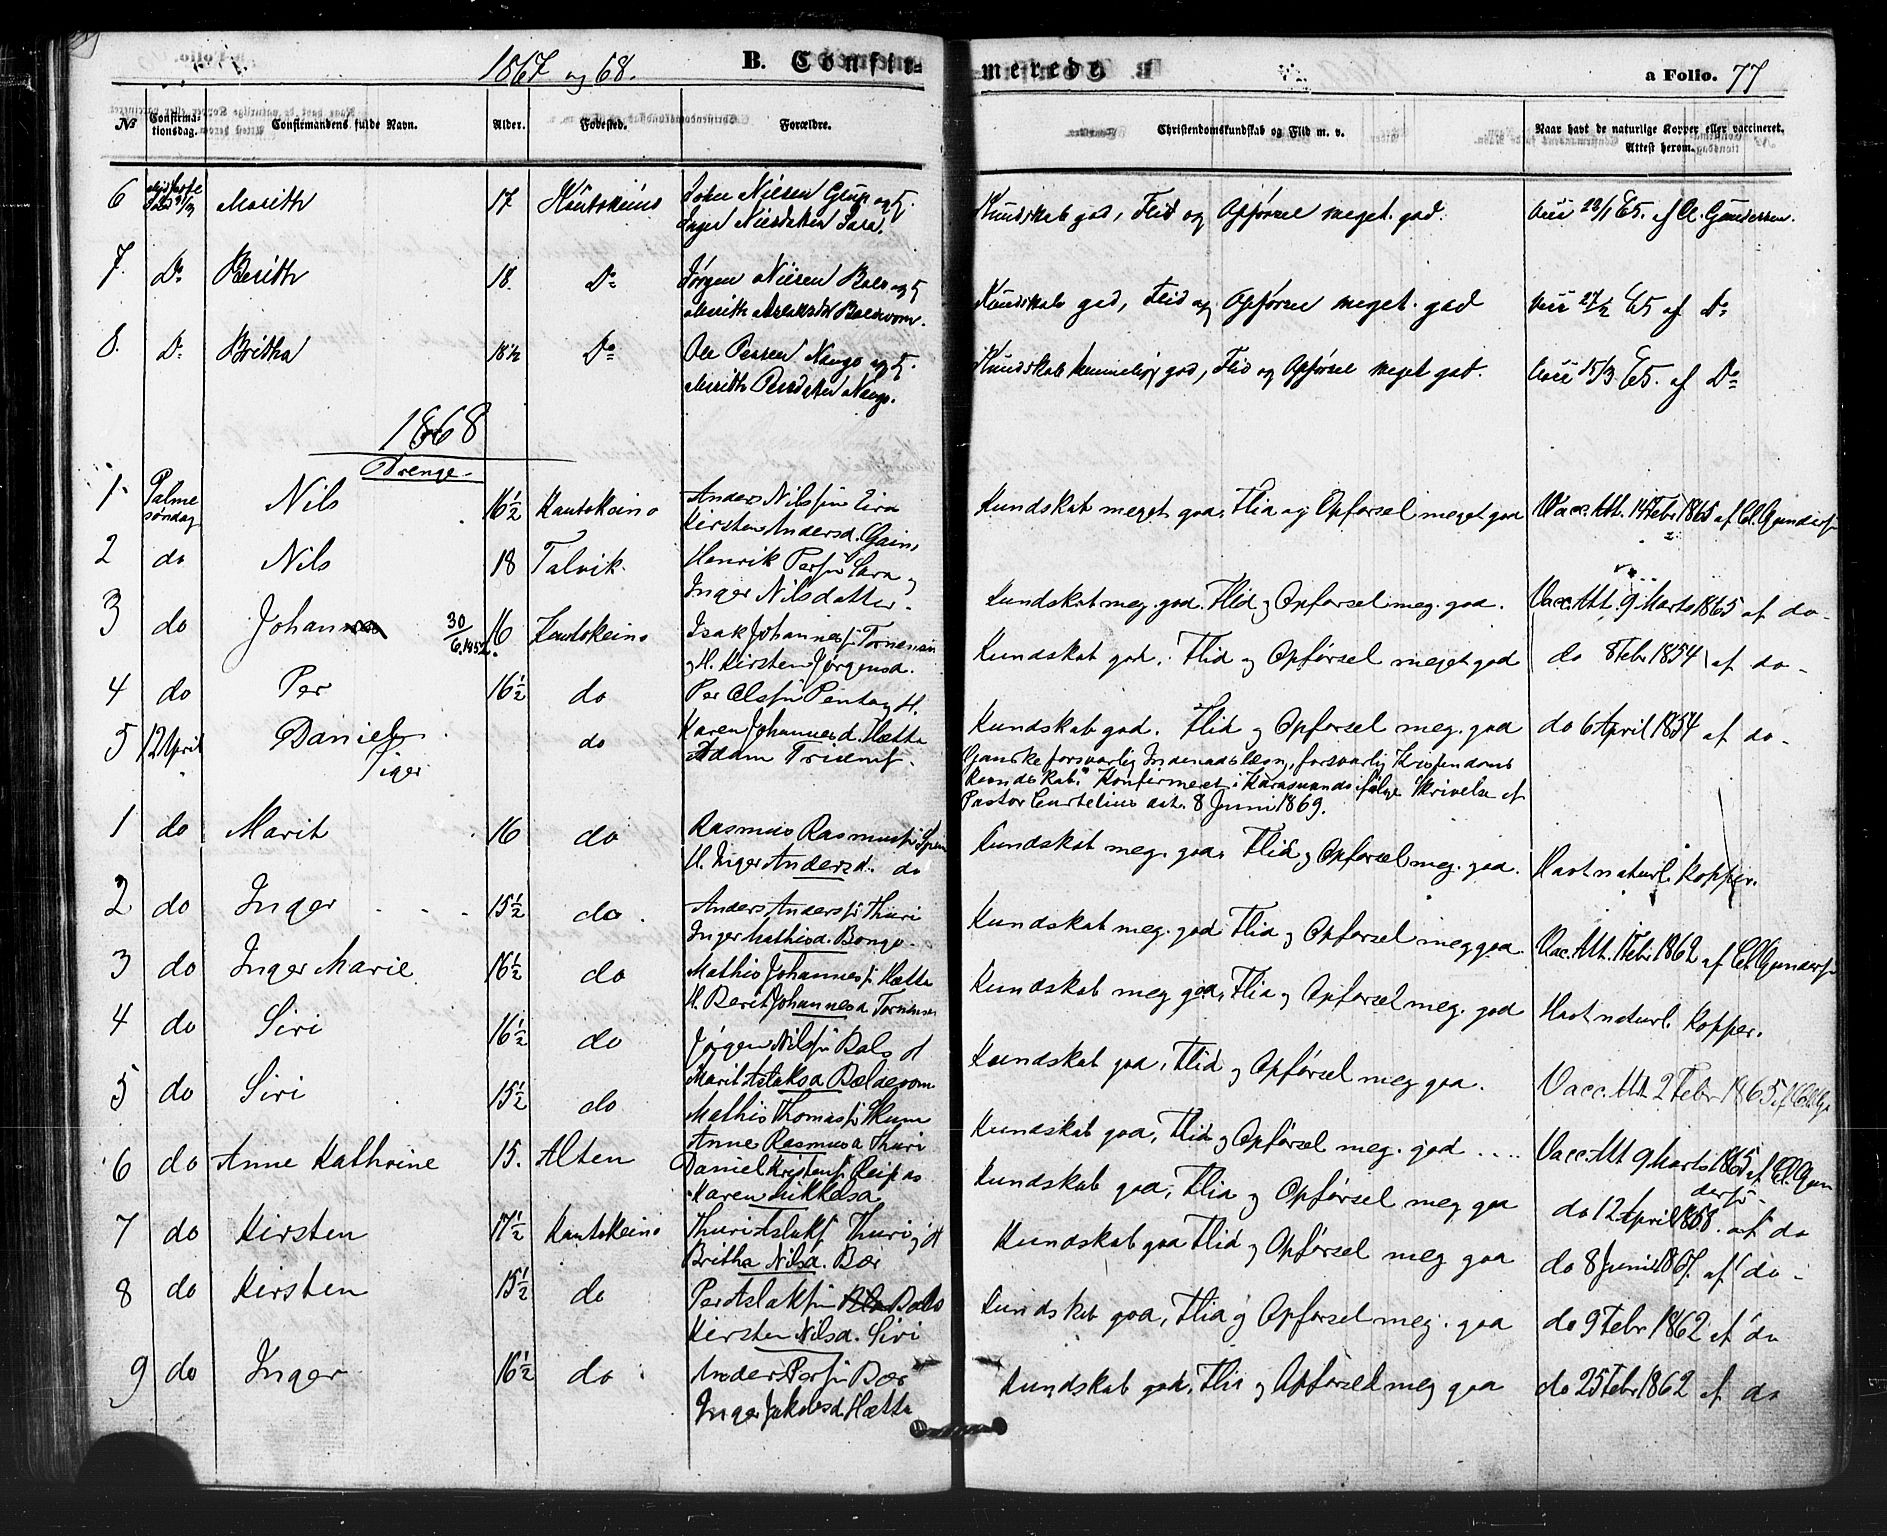 1867 og 68. B. Confir= merede. a Folio. 77
No Confirma-tionsdag. Confirmandens fulde Navn. Alder. Fødested. Forældre. Christendomskundskab og Flid m. v. Naar havt de naturlige Kopper eller vaccineret. Attest herom.
6 Marith 17 Kautokeino John Nilsen Gaup og H. Kundskab god, Flid og Opførsel meget god. af Cl. Gundersen.
Inger Nilsdatter Sara.
7. Do Berith 18. Do Jørgen Nilsen Bals og H. Kundskab god, Flid og Opførsel meget god 27/2 65 af Do
Marith Aslaksdtr Baldevom.
8. Do Britha 18½ Do Ole Persen Nango og H. Kundskab temmelig god, Flid og Opførsel meget god. 15/3 65. af Do
Marith Persdatter Nango.
1868
Drenge.
1 Palme Nils 16½ Kautokeino Anders Nilssøn Eira Kundskab meget god, Flid og Opførsel meget god Vacc. Att. 14 Febr 1865 af Cl. Gunders.
søndag Kirsten Andersd. Gain,
2 do Nils 18 Talvik. Henrik Perss. Sara og Kundskab meg. god. Flid og Opførsel meg. god. Vacc. Att. 9 Marts 1865 af do.
Inger Nilsdatter.
3 do Johan 30/6.1852. 16 Kautokeino Isak Johanness. Tornensis Kundskab god, Flid og Opførsel meget god do 8 Febr. 1854 af do.
og H. Kirsten Jørgensd.
4 do Per 16½ do Per Olss. Penta og H. Kundskab god. Flid og Opførsel meg. god do 6 April 1854 af do.
Karen Johannesd. Hætta
5 12 April Daniel do Adam Trisent. Ganske forsvarlig Indenadslæsn., forsvarlig Kristendoms
Kundskab." Konfirmeret i Karasuando ifølge Skrivelse af
Pastor Curtelius dat. 8 Juni 1869.
Piger
1 do Marit 16 do Rasmus Rasmuss. Spein Kundskab meg. god, Flid og Opførsel meg. god. Havt naturl. Kopper.
H. Inger Andersd. do
2 do Inger 15½ do. Anders Anderss. Thuri Kundskab meg. god Flid og Opførsel meg god. Vac. Att. 1 Febr 1862 af Cl. Gunders.
Inger Mathisd. Bongo.
3 do Inger Marie 16½ do Mathis Johanness. Hætta Kundskab meg god, Flid og Opførsel meg. god Havt naturl. Kopper.
H. Berit Johannesd. Tornensis
4 do Siri 16½ do Jørgen Nilss. Bals og H Kundskab god, Flid og Opførsel meg god. Vacc. Att 2 Febr 1865 af
Marit Aslaksd Baldevom
5 do Siri 15½ do Mathis Thomass. Skum Kundskab god, Flid og Opførsel meg. god .... Vacc. Att 9 Marts 1865 af Cl. Gun
Anne Rasmusd Thuri ders.
6 do Anne Kathrine 15. Alten Daniel Kristens. Reipas Kundskab god, Flid og Opførsel meg god do 12 April 1858. af do
Karen Mikkelsd
7 do Kirsten 17½ Kautokeino Thuri Aslaks. Thuri og H Kundskab god Flid og Opførsel meg god do 8 Juni 1867. af do.
Britha Nilsd. Bær
8 do Kirsten 15½ do Per Aslakss. Bals Kundskab god, Flid og Opførsel meg. god do 9 Febr 1862 af do
Kirsten Nilsd. Siri
9 do Inger 16½ do Anders Perss. Bær Kundskab god, Flid og Opførsel meg god do 25 Febr 1862 af do
Inger Jakobsd Hætta